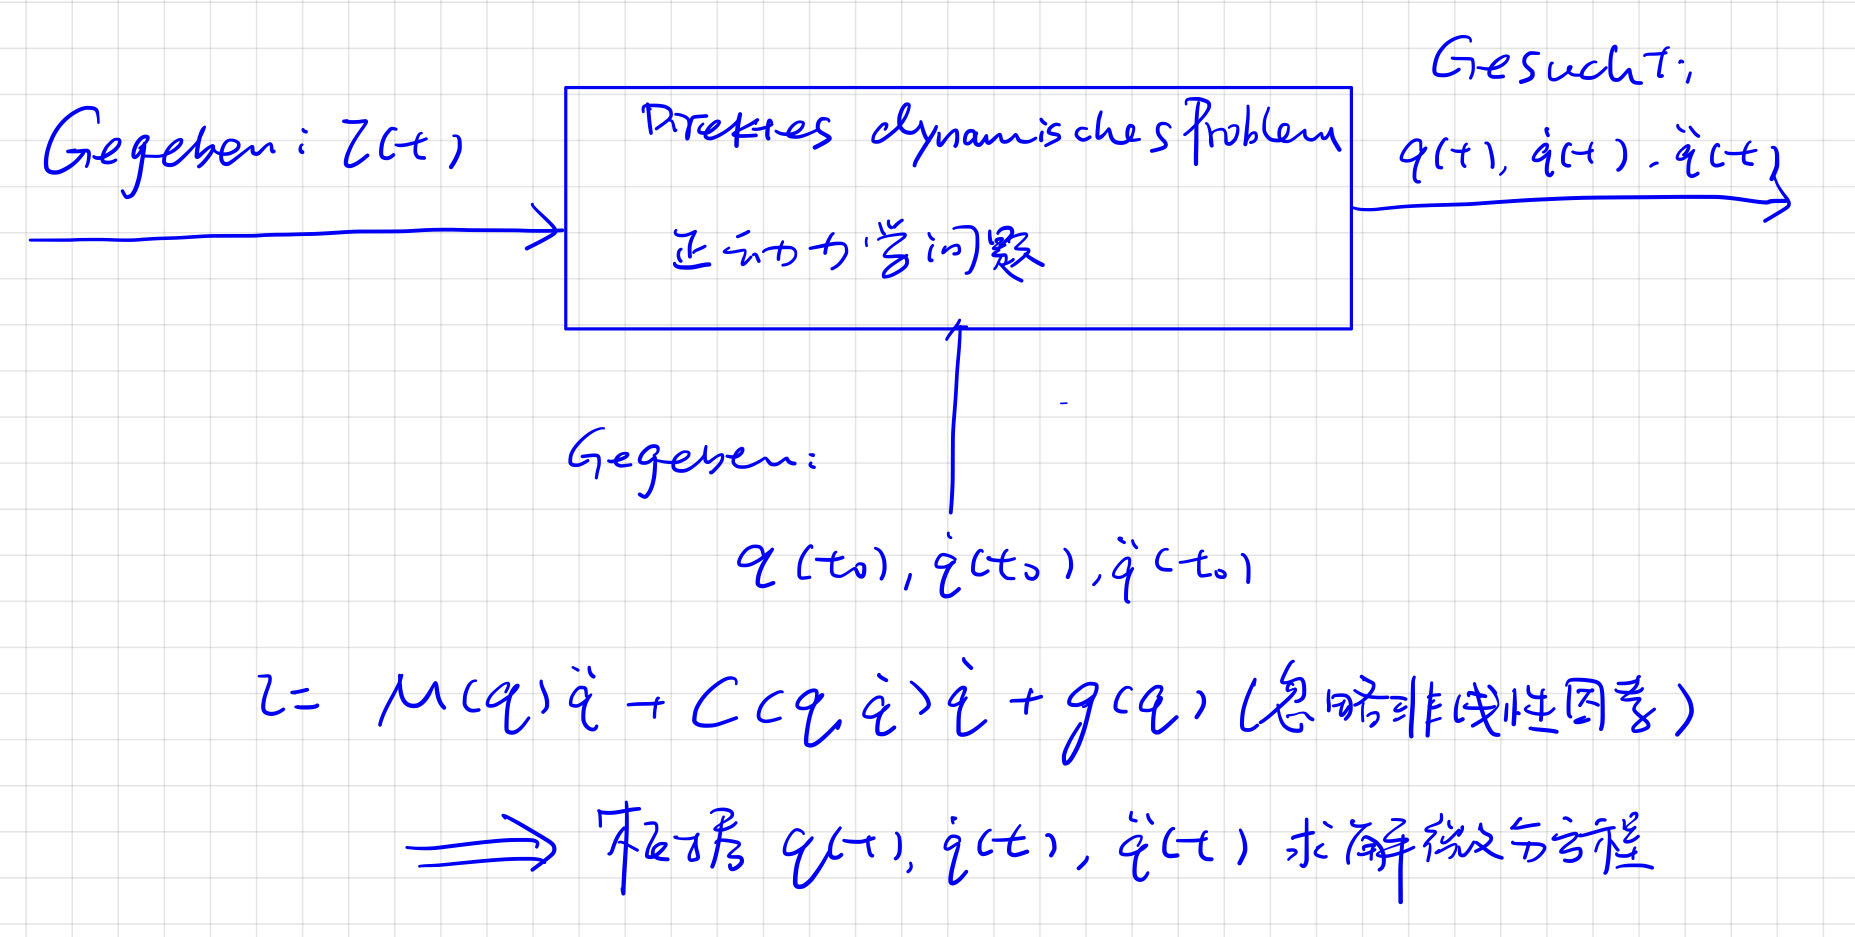 Gegeben: τ(t)
Direktes dynamisches Problem
正动力学问题
Gesucht:
q(t), q̇(t), q̈(t)
Gegeben:
q(t₀), q̇(t₀), q̈(t₀)
τ = M(q)q̈ + C(q, q̇)q̇ + g(q) (忽略非线性因素)
⟹ 根据 q(t), q̇(t), q̈(t) 求解微分方程